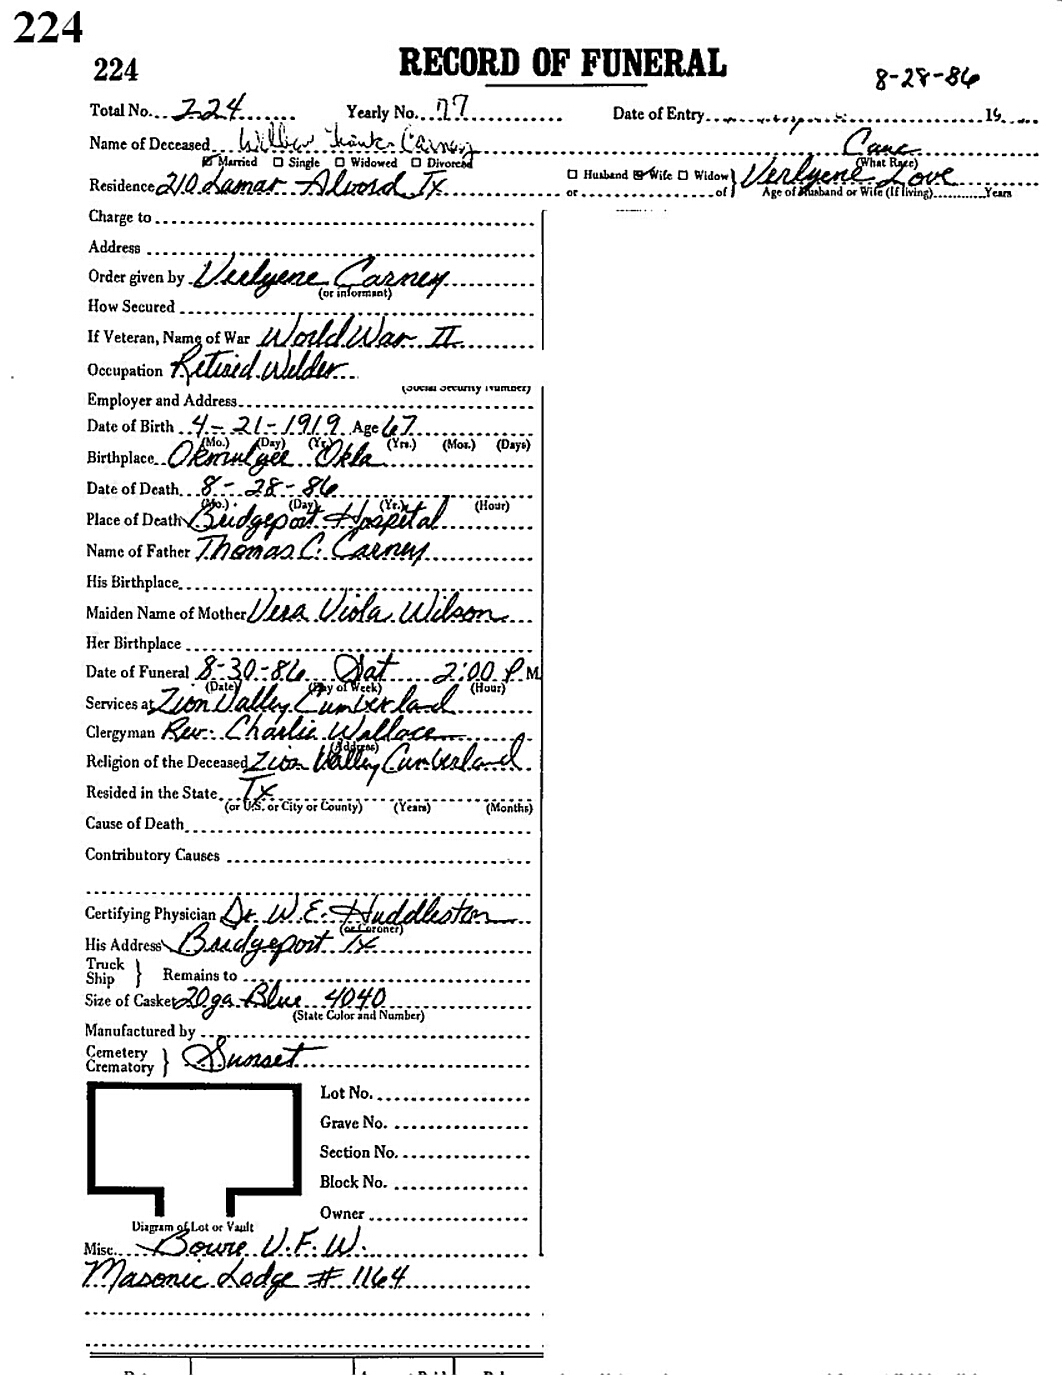 224
224
RECORD OF FUNERAL
8-28-86
Total No. 224 Yearly No. 77 Date of Entry 19
Name of Deceased Carney Cauc
Married Single Widowed Divorced (What Race)
Residence 210 Lamar Alvord Tx Husband Wife Widow or of } Verlyene Love
Age of Husband or Wife (If living) Years
Charge to
Address
Order given by Verlyene Carney
(or informant)
How Secured
If Veteran, Name of War World War II
Occupation Retired Welder
(Social Security Number)
Employer and Address
Date of Birth 4-21-1919 Age 67
(Mo.) (Day) (Yr.) (Yrs.) (Mos.) (Days)
Birthplace Okmulgee Okla
Date of Death 8-28-86
(Mo.) (Day) (Yr.) (Hour)
Place of Death Bridgeport Hospital
Name of Father Thomas C. Carney
His Birthplace
Maiden Name of Mother Vera Viola Wilson
Her Birthplace
Date of Funeral 8-30-86 Sat 2:00 P M.
(Date) (Day of Week) (Hour)
Services at Zion Valley Cumberland
Clergyman Rev. Charlie Wallace
(Address)
Religion of the Deceased Zion Valley Cumberland
Resided in the State Tx
(or U.S. or City or County) (Years) (Months)
Cause of Death
Contributory Causes
Certifying Physician Dr. W.E. Huddleston
(or Coroner)
His Address Bridgeport Tx
Truck
Ship } Remains to
Size of Casket 20ga Blue 4040
(State Color and Number)
Manufactured by
Cemetery
Crematory } Sunset
Lot No.
Grave No.
Section No.
Block No.
Owner
Diagram of Lot or Vault
Misc. Bowie V.F.W.
Masonic Lodge # 1164